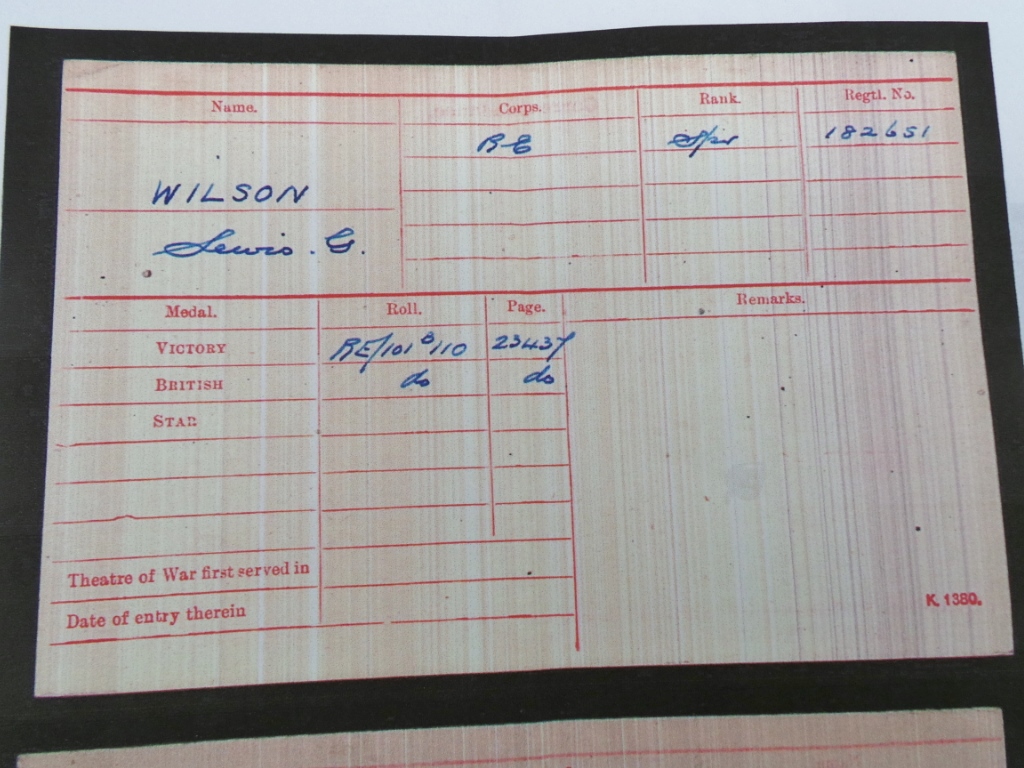 Name. Corps. Rank. Regtl. No.
R E Spr 182651
WILSON
Lewis. G.
Medal. Roll. Page. Remarks.
VICTORY RE/101 B/110 23437
BRITISH do do
STAR
Theatre of War first served in
Date of entry therein
K. 1380.